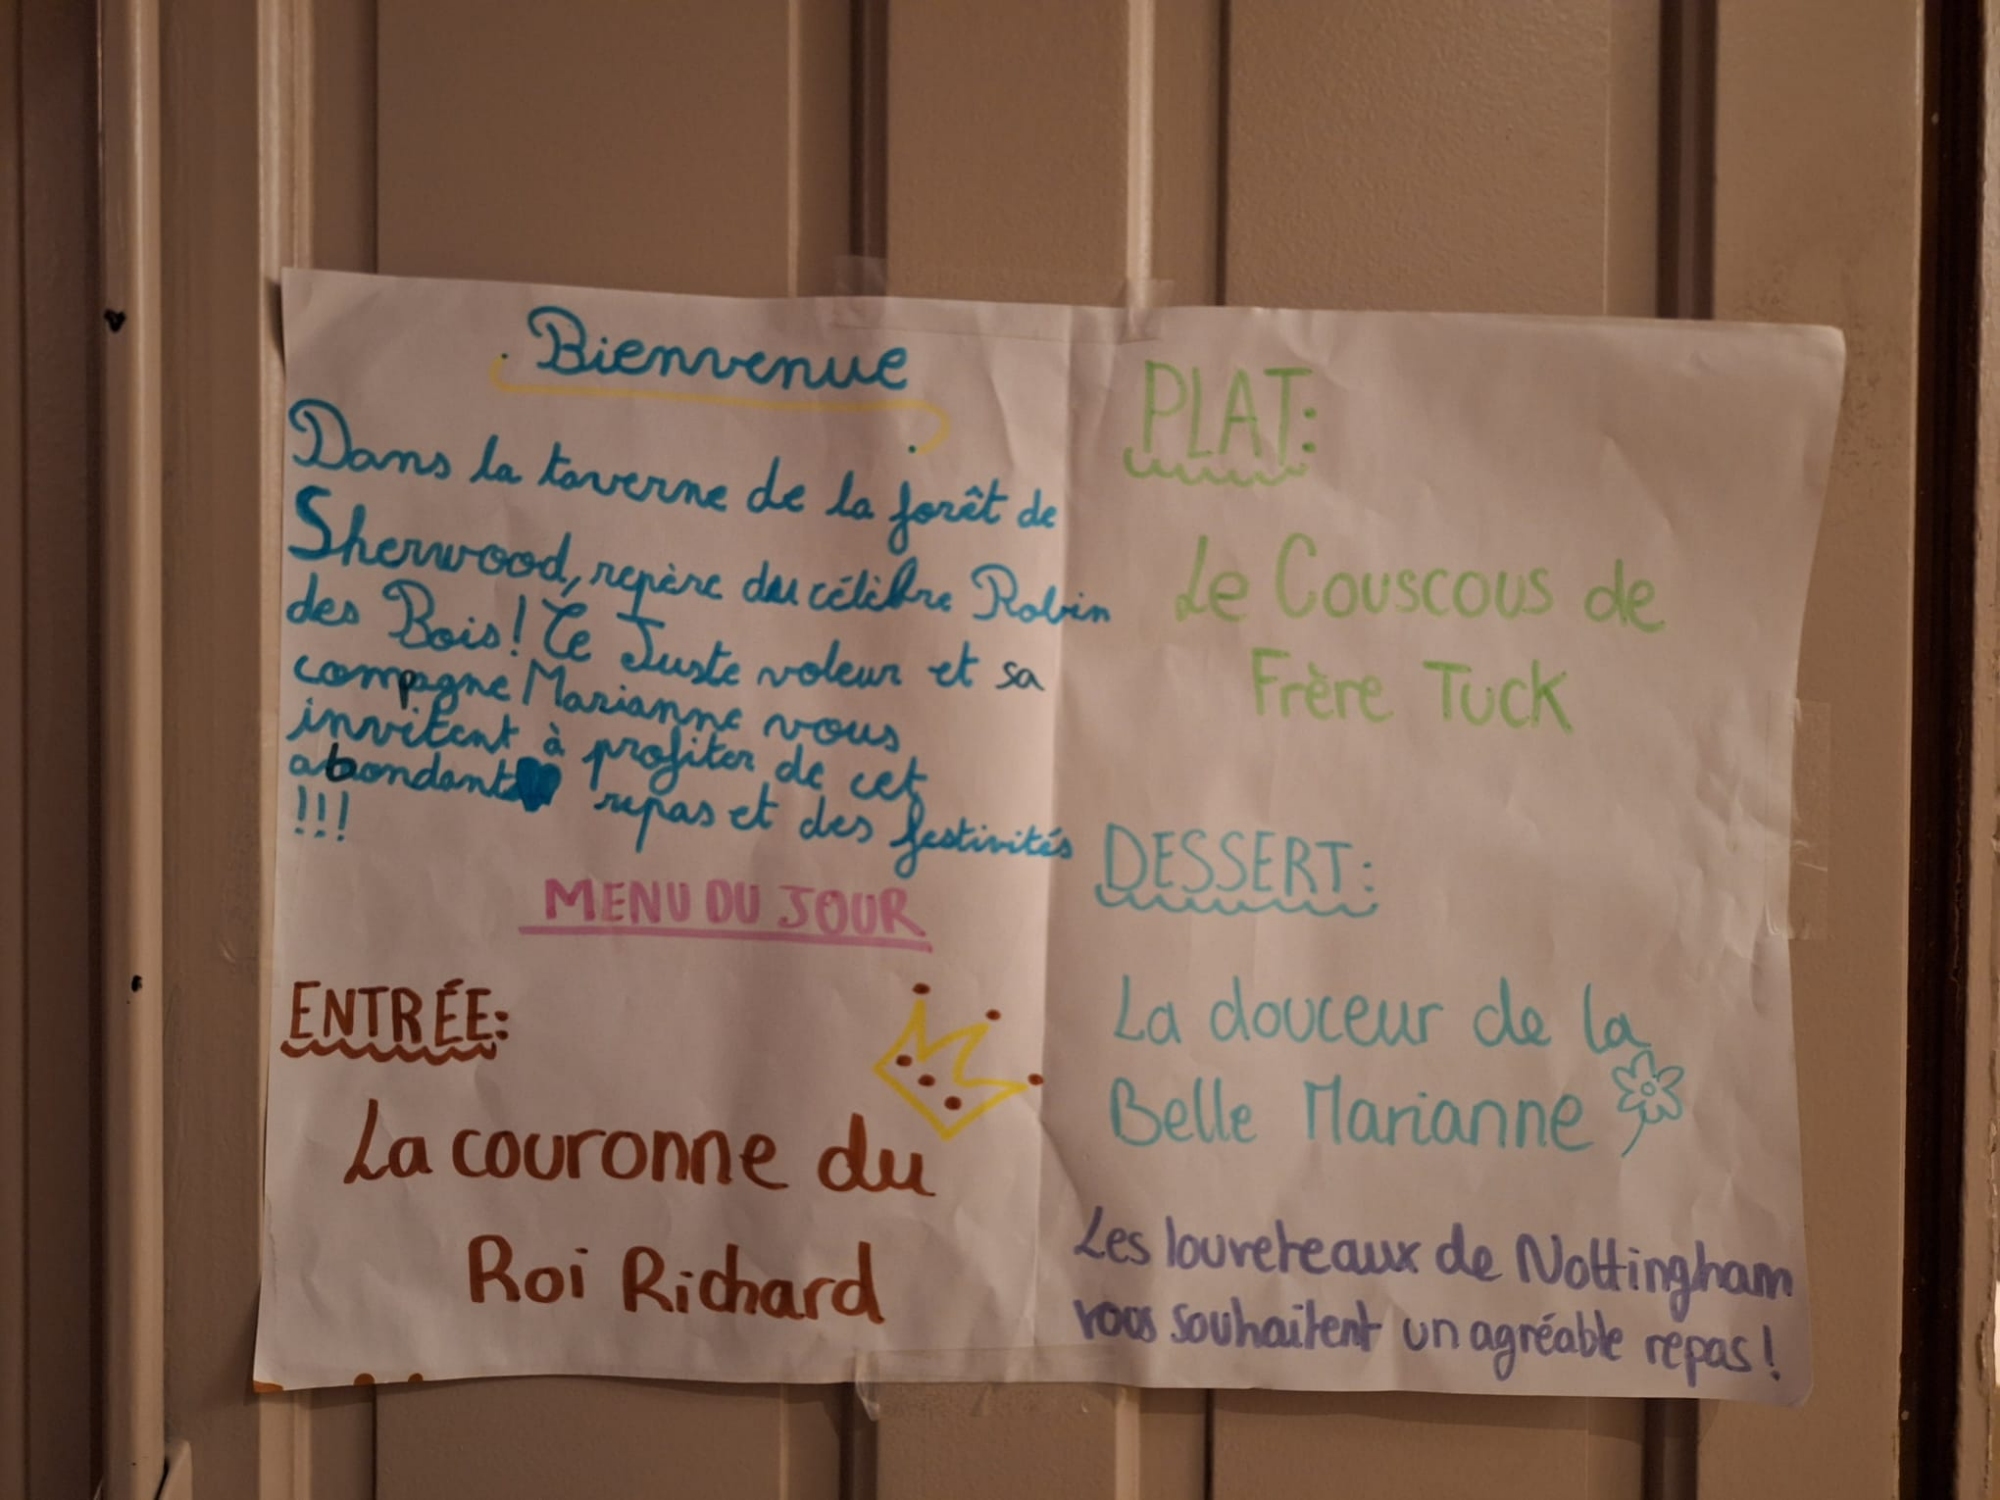 Bienvenue
Dans la taverne de la forêt de
Sherwood, repère du célèbre Robin
des Bois! Ce Juste voleur et sa
compagne Marianne vous
invitent à profiter de cet
abondant repas et des festivités
!!!
MENU DU JOUR
ENTRÉE:
La couronne du
Roi Richard
PLAT:
Le Couscous de
Frère Tuck
DESSERT:
La douceur de la
Belle Marianne
Les louveteaux de Nottingham
vous souhaitent un agréable repas!